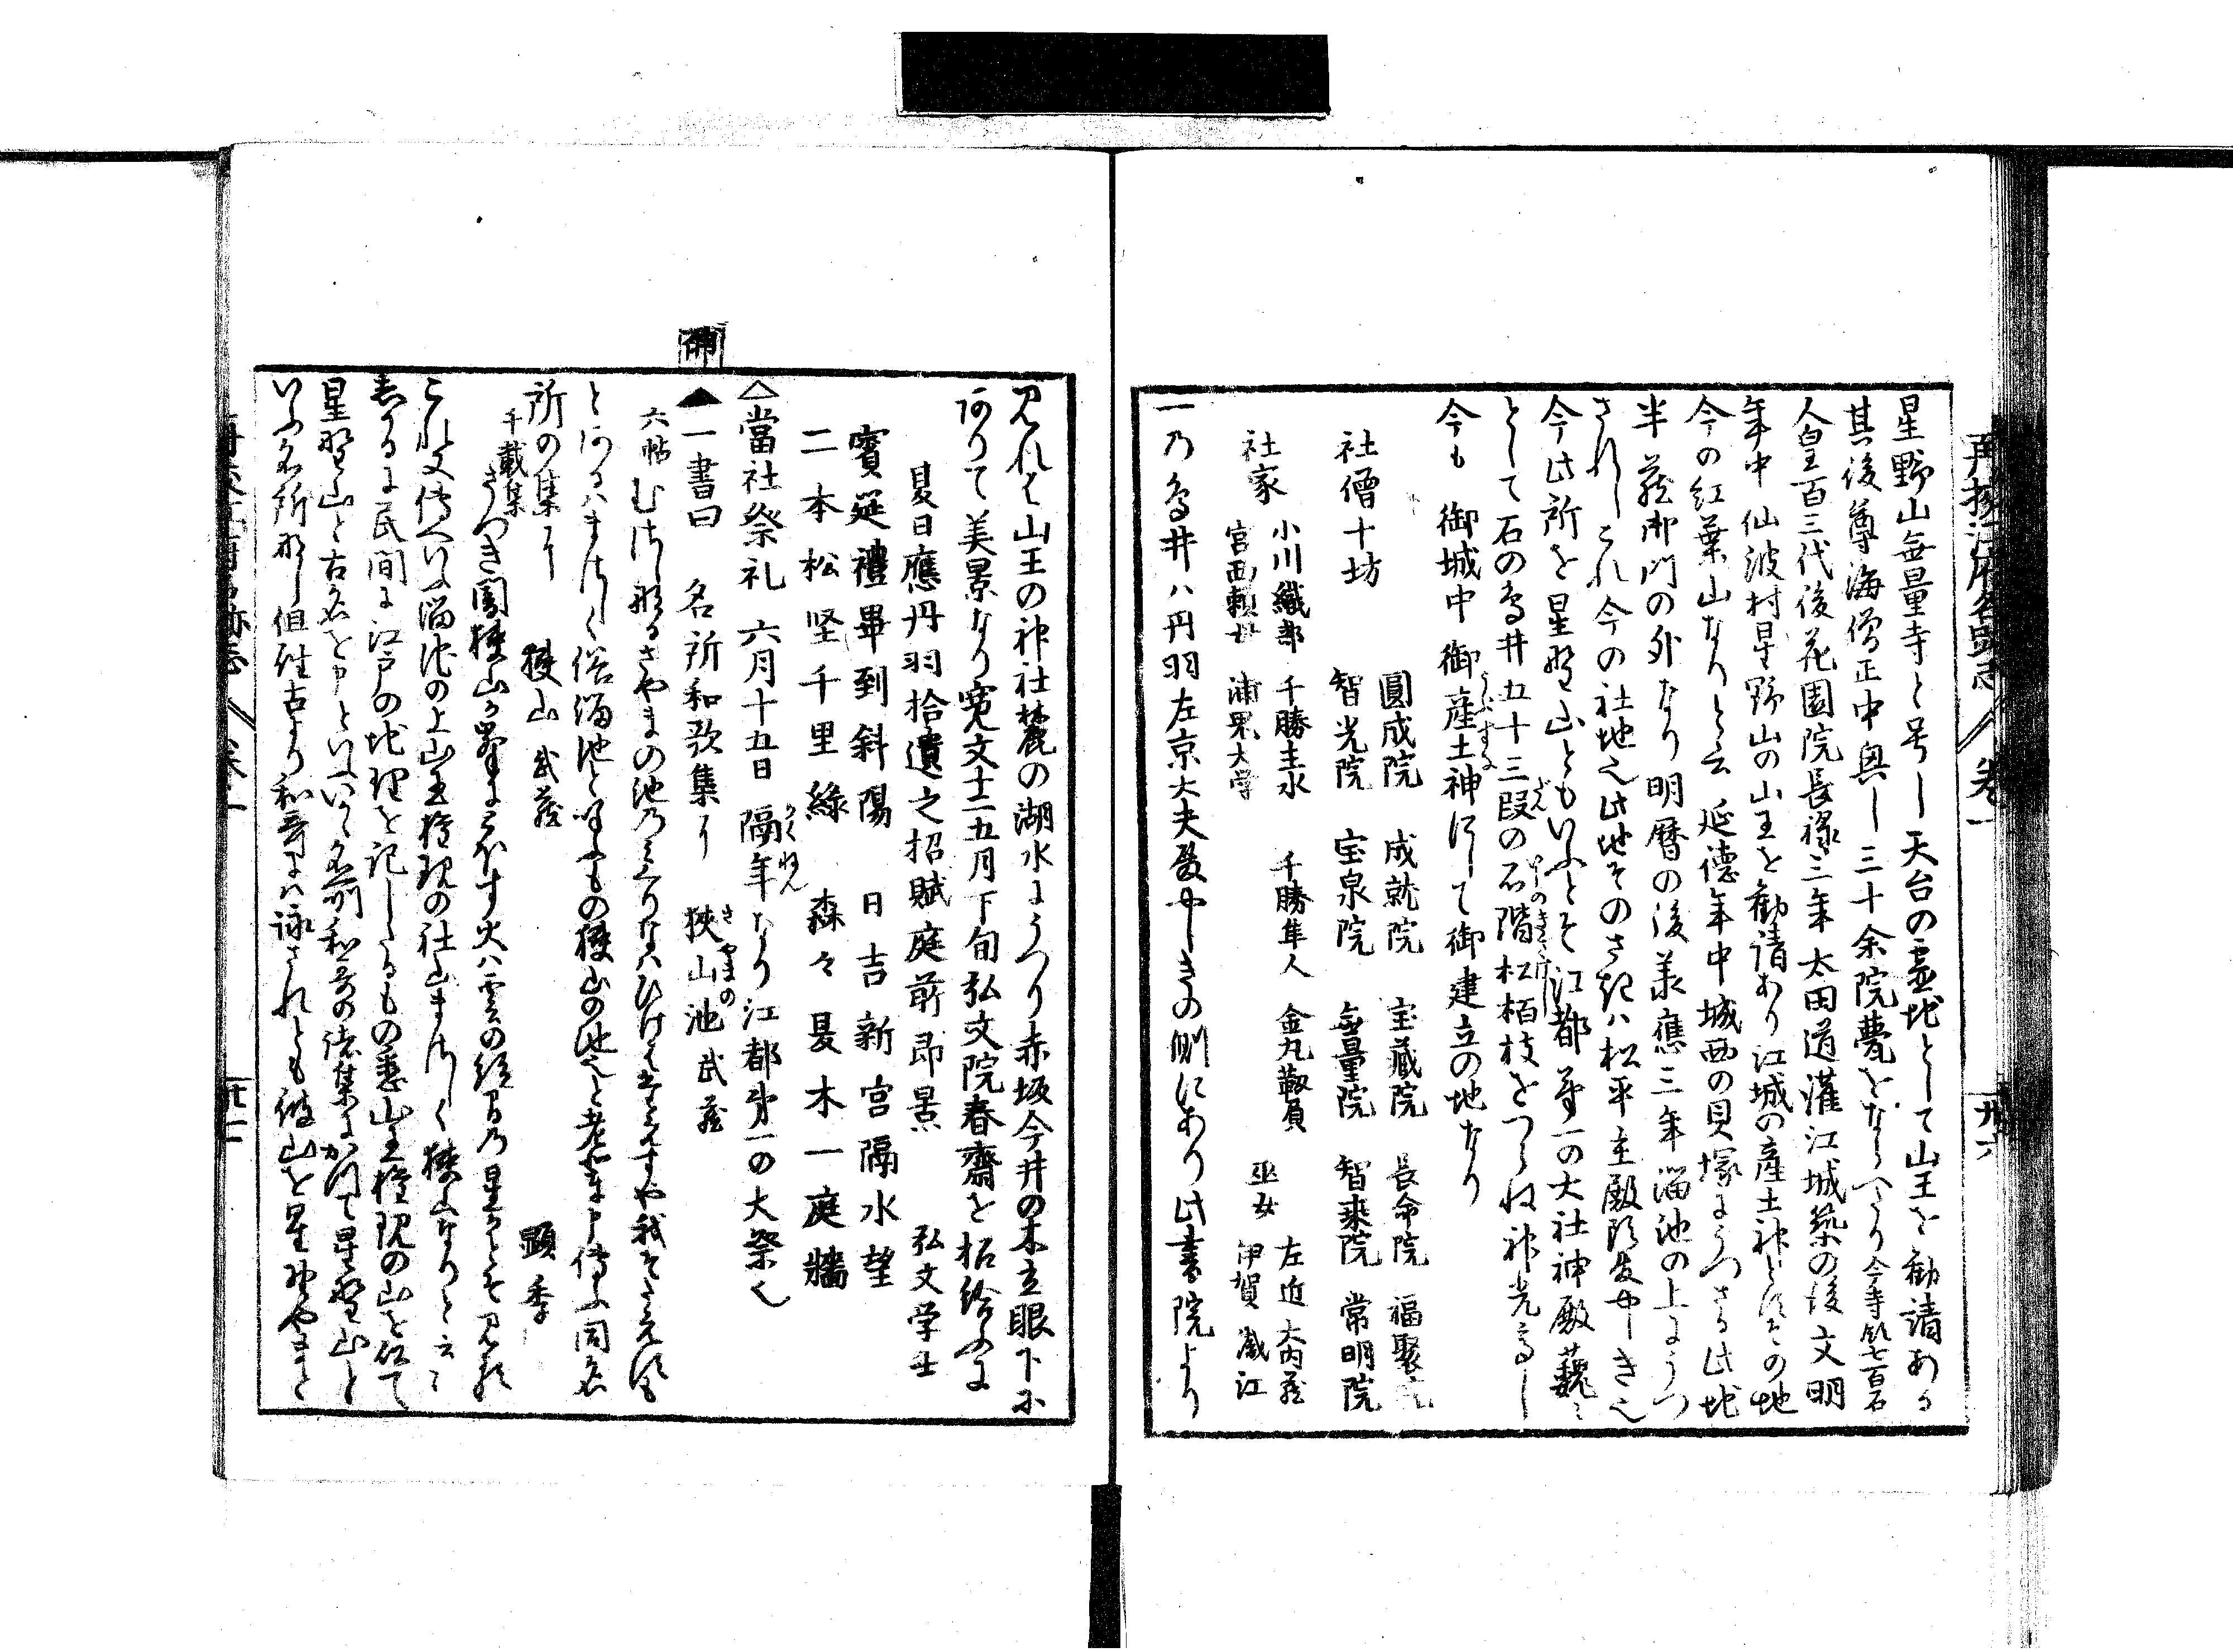 再校江戸名跡志 巻一
星野山無量寺と号し天台の霊地として山王を勧請ある
其後尊海僧正中興し三十余院甍をならへたり今寺領七百石
人皇百三代後花園院長禄三年太田道灌江城築の後文明
年中仙波村星野山の山王を勧請あり江城の産土神とすその地
今の紅葉山なりと云延徳年中城西の貝塚にうつさる此地
半蔵御門の外なり明暦の後承應三年溜池の上にうつ
されしこれ今の社地也此地そのさきハ松平主殿頭殿やしき也
今此所を星野山ともいふとそ江都第一の大社神殿巍々
として石の鳥井五十三段の石階松栢枝をつらね神光高し
今も 御城中御産土神にして御建立の地なり
社僧十坊 圓成院 成就院 宝蔵院 長命院 福聚院
智光院 宝泉院 無量院 智乗院 常明院
社家 小川織部 千勝主水 千勝隼人 金丸靱負 巫女 左近 大内蔵
宮西頼母 浦男大学 伊賀 蔵江
一の鳥井ハ丹羽左京大夫殿やしきの側にあり此書院より
見れは山王の神社麓の湖水にうつり赤坂今井の木立眼下に
ありて美景なり寛文十二五月下旬弘文院春齋を招給ふに
夏日應丹羽拾遺之招賦庭前即景 弘文学士
賓筵禮畢到斜陽 日吉新宮隔水望
二本松堅千里緑 森々夏木一庭牆
△當社祭礼 六月十五日 隔年なり江都第一の大祭也
補
▲一書曰 名所和歌集に 狭山池 武蔵
六帖 むさし なるさやまの池のみくりなはひけはたえすや我そたえする
とあるハまさしく 俗溜池と
所の集に 狭山 武蔵 顕季
千載集 さつき闇狭山か峯にともす火ハ雲の絶間の星かとそ見る
これ又傳へいふ溜池の上山王権現の社山まさしく狭山なりと云々
去るに民間に江戸の地理を記したるもの悉山王権現の山を以て
星野山と古名を申といへハいへ名所和哥の諸集にかつて星野山と
いふ名所なし但往古より和哥にハ詠されとも彼山を星野やまと